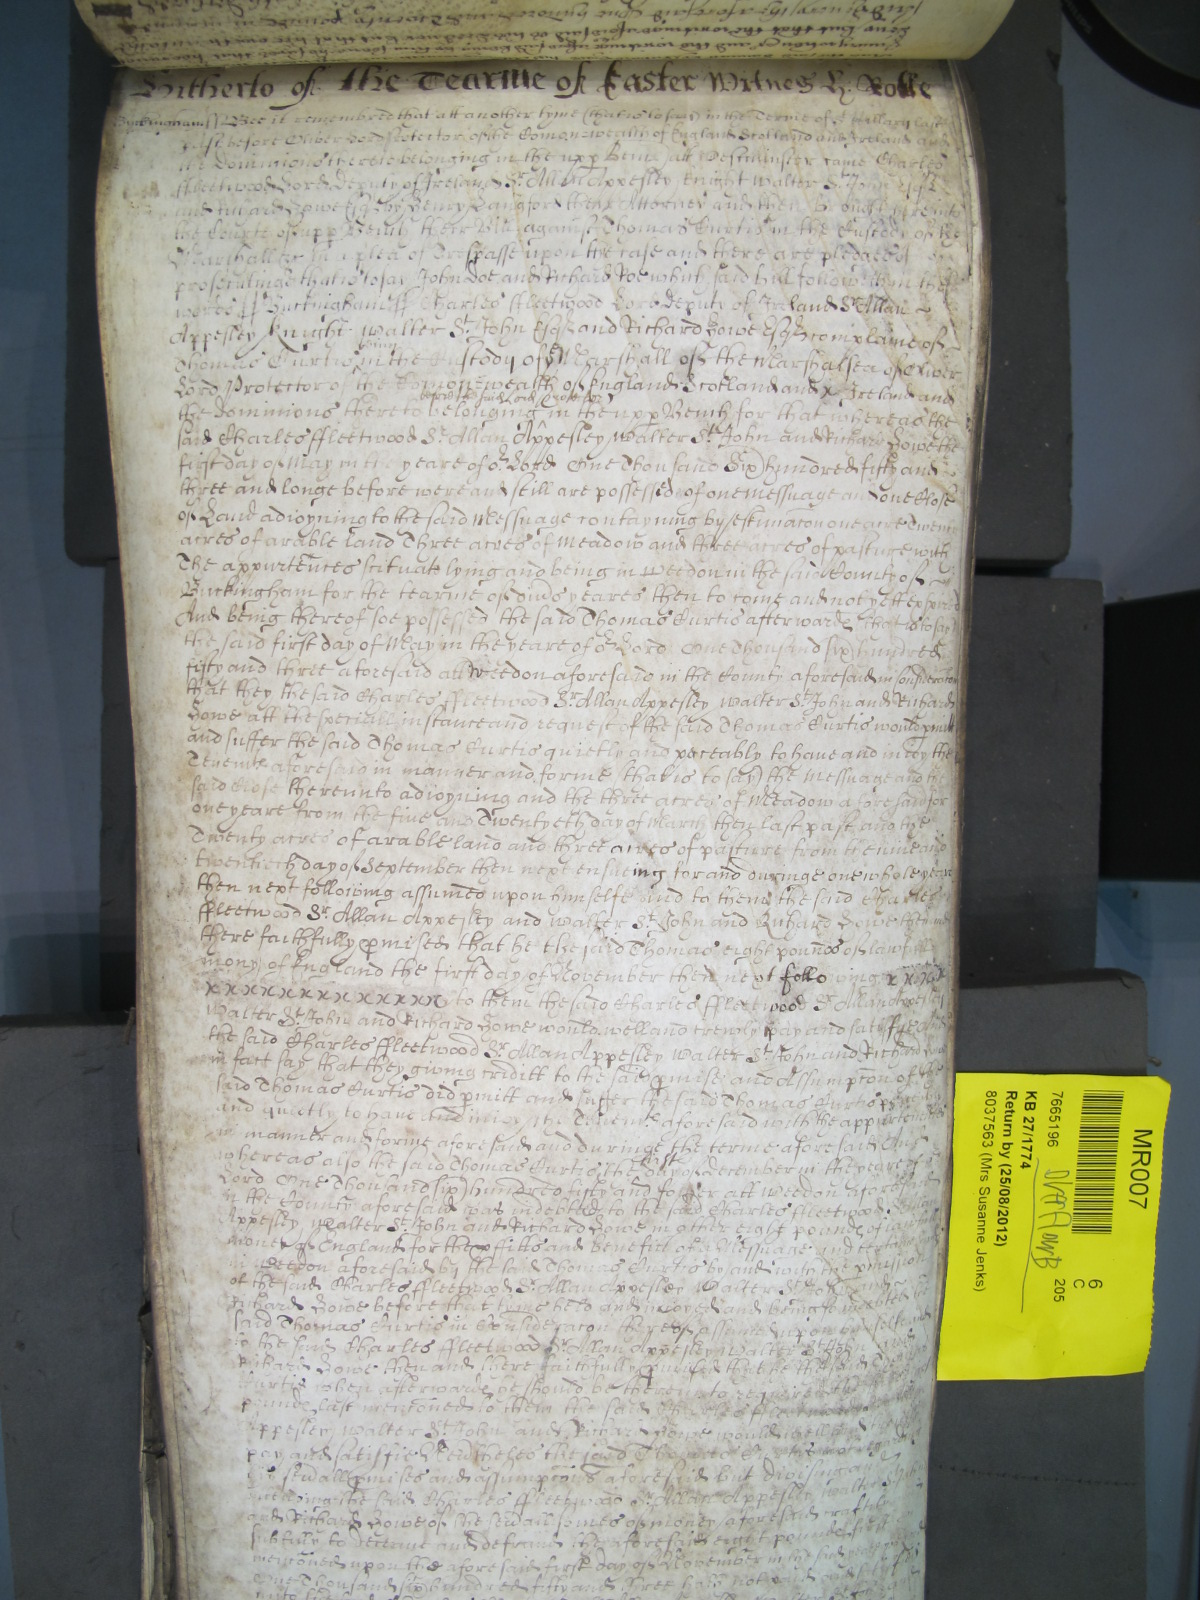 Hitherto of the Tearme of Easter Witnes H. Rolle
Buckingham ss Bee it remembred that att another tyme (that is to say) in the Terme of St Hillary last
past before Oliver Lord Protector of the Comonwealth of England Scotland and Ireland and
the dominions thereto belonging in the upp Bench att Westminster came Charles
ffleetwood Lord deputy of Ireland Sr Allan Appesley Knight Walter St John Esqr
and Richard Lowe Esqr by Henry Langford their Attorney and then brought here into
the Courte of upp Bench their Bill against Thomas Curtis in the Custody of the
Marshall &c in a plea of Trespasse upon the case and there are pledges of
prosecutinge that is to say John Doe and Richard Roe which said bill followeth in these
words ss Buckingham ss Charles ffleetwood Lord deputy of Ireland Sr Allan
Appesley Knight Walter St John Esqr and Richard Lowe Esqr complaine of
Thomas Curtis being in the Custody of ye Marshall of the Marshalsea of Oliver
Lord Protector of the Comonwealth of England Scotland and x Ireland and
the dominions thereto belonging before the said Lord Protector in the upp Bench for that whereas the
said Charles ffleetwood Sr Allan Appesley Walter St John and Richard Lowe the
first day of May in the yeare of or Lord One Thousand Six hundred fifty and
three and longe before were and still are possessed of one messuage and one Close
of Land adioyning to the said Messuage contayning by estimacon one acre Twenty
acres of arable land Three acres of Meadow and three acres of pasture with
The appurtences scituate lying and being in Weedon in the said County of
Buckingham for the tearme of divs yeares then to come and not yett expired
And being thereof soe possessed the said Thomas Curtis afterwards that is to say
the said first day of May in the yeare of or Lord One Thousand six hundred
fifty and three aforesaid att Weedon aforesaid in the County aforesaid in consideracon
that they the said Charles ffleetwood Sr Allan Appesley Walter St John and Richard
Lowe att the speciall instance and request of the said Thomas Curtis would pmitt
and suffer the said Thomas Curtis quietly and peceably to have and inioy the
Tenemts aforesaid in manner and forme (that is to say) the Messuage and the
said Close thereunto adioyning and the three acres of Meadow aforesaid for
one yeare from the five and Twentyeth day of March then last past and the
Twenty acres of arable land and three acres of pasture from the nine and
twentieth day of September then next ensueing for and duringe one whole yeare
then next following assumed upon himselfe and to them the said Charles
ffleetwood Sr Allan Appesley and Walter St John and Richard Lowe then and
there faithfully pmised that he the said Thomas eight pounds of lawfull
mony of England the first day of November then next following x x x x
x x x x x x x x x x x x x x to them the said Charles ffleetwood Sr Allan Appesley
Walter St John and Richard Lowe would well and trewly pay and satisfye And
the said Charles ffleetwood Sr Allan Appesley Walter St John and Richard Lowe
in fact say that they giving creditt to the said pmise and Assumpcon of the
said Thomas Curtis did pmitt and suffer the said Thomas Curtis
and quietly to have and inioy the Tenemts aforesaid with the appurtences
in manner and forme aforesaid and duringe the terme aforesaid And
whereas also the said Thomas Curtis the first day of December in the yeare of or
Lord One Thousand six hundred fifty and fower att Weedon aforesaid
in the County aforesaid was indebted to the said Charles ffleetwood Sr Allan
Appesley Walter St John and Richard Lowe in other eight pounds of lawfull
money of England for the pffitts and benefitt of a Messuage and certaine
in Weedon aforesaid by the said Thomas Curtis by and with the pmission
of the said Charles ffleetwood Sr Allan Appesley Walter St John and
Richard Lowe before that tyme held and inioyed and being soe indebted the
said Thomas Curtis in Consideracon thereof assumed upon himselfe and
to the said Charles ffleetwood Sr Allan Appesley Walter St John and
Richard Lowe then and there faithfully pmised that he the said Thomas
Curtis when afterwards he should be thereunto required the
pounds last mentioned to them the said Charles ffleetwood
Appesley Walter St John and Richard Lowe would well and
pay and satisfie Nevertheles the said Thomas Curtis
his sevall pmises and assumpcons aforesaid but divising and
intending the said Charles ffleetwood Sr Allan Appesley Walter St John
and Richard Lowe of the sevall somes of money aforesaid craftily
subtilly to deceave and defraud the aforesaid eight pounds first
mencioned upon the aforesaid first day of November in the said yeare
One Thousand six hundred fifty and three hath not paid
MR007
6
C
205
7665196
KB 27/1774
Return by (25/08/2012)
8037563 (Mrs Susanne Jenks)